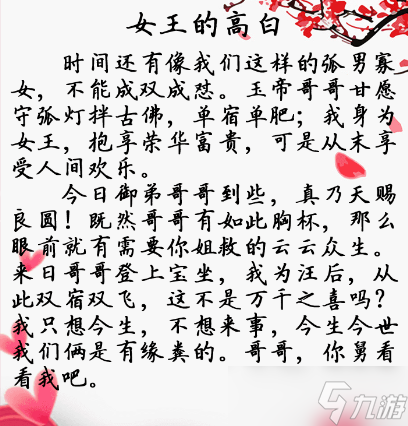 女王的高白
时间还有像我们这样的孤男寡
女，不能成双成怼。玉帝哥哥甘愿
守孤灯拌古佛，单宿单肥；我身为
女王，抱享荣华富贵，可是从末享
受人间欢乐。
今日御弟哥哥到些，真乃天赐
良圆！既然哥哥有如此胸杯，那么
眼前就有需要你姐救的云云众生。
来日哥哥登上宝坐，我为汪后，从
此双宿双飞，这不是万千之喜吗？
我只想今生，不想来事，今生今世
我们俩是有缘粪的。哥哥，你舅看
看我吧。
九游